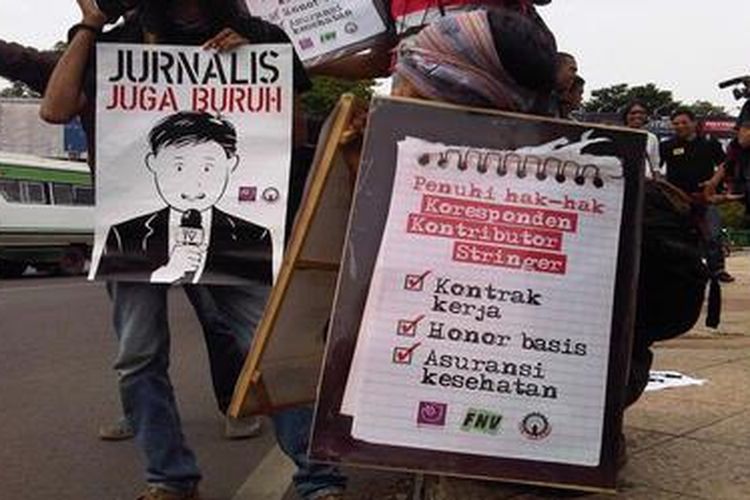 JURNALIS
JUGA BURUH
TV
of Honor
Asuransi
kesehatan
FNV
Penuhi hak-hak
Koresponden
Kontributor
Stringer
Kontrak
kerja
Honor basis
Asuransi
kesehatan
FNV